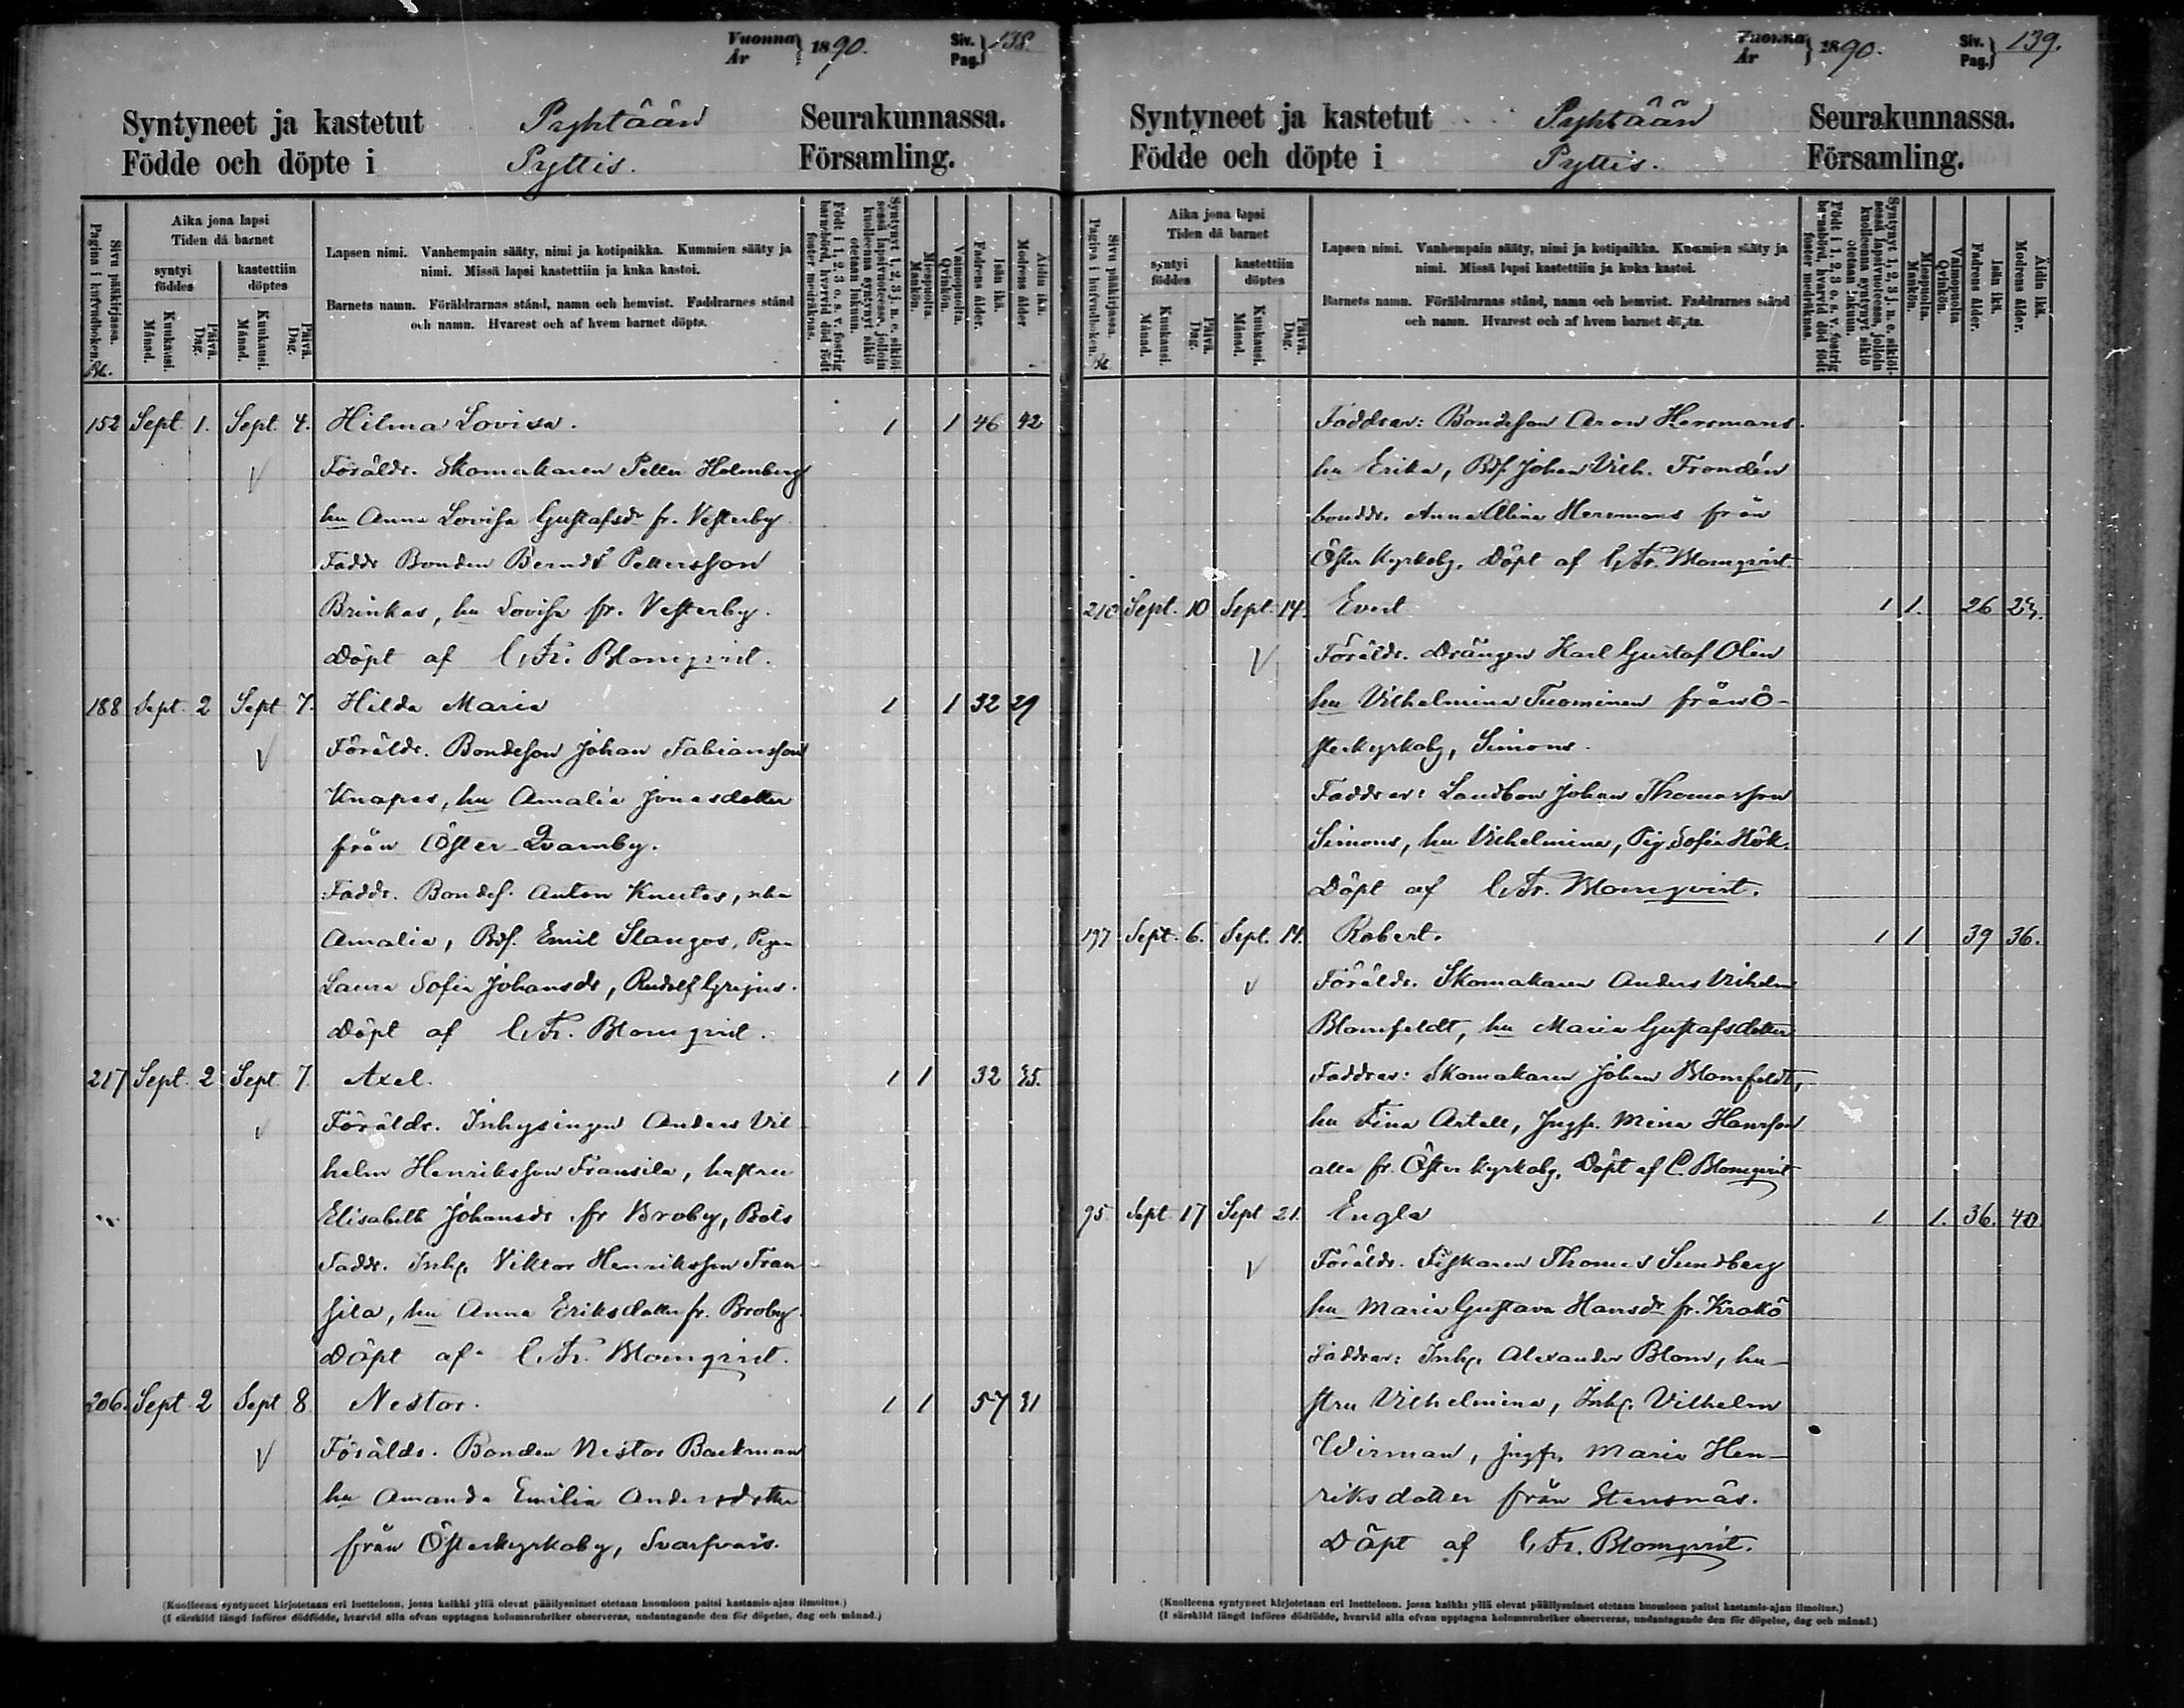 Vuonna År } 1890. Siv. Pag. } 138.
Syntyneet ja kastetut Pyhtään Seurakunnassa.
Födde och döpte i Pyttis. Församling.
Sivu pääkirjassa. Pagina i hufvudboken.
Aika jona lapsi
Tiden då barnet
syntyi
föddes
kastettiin
döptes
Kuukausi. Månad.
Päivä. Dag.
Kuukausi. Månad.
Päivä. Dag.
Lapsen nimi. Vanhempain sääty, nimi ja kotipaikka. Kummien sääty ja
nimi. Missä lapsi kastettiin ja kuka kastoi.
Barnets namn. Föräldrarnas stånd, namn och hemvist. Faddrarnes stånd
och namn. Hvarest och af hvem barnet döpts.
Syntynyt 1, 2, 3 j. n. e. sikiöisessä lapsivuoteessa, jolloin kuolleenna syntynyt sikiö otetaan lukuun.
Födt i 1, 2, 3 o. s. v. fostrig barnsbörd, hvarvid död född foster medräknas.
Miespuolta. Mankön.
Vaimopuolta. Qvinkön.
Isän ikä. Fadrens ålder.
Äidin ikä. Modrens ålder
152 Sept 1. Sept. 4. Hilma Lovisa. 1 1 46 42
Föräldr. Skomakaren Petter Holmberg
hu Anna Lovisa Gustafsdr fr. Vesterby
Faddr Bonden Berndt Pettersson
Brinkas, hu Lovisa fr. Vesterby.
Döpt af C. Fr. Blomqvist.
188 Sept. 2 Sept 7. Hilda Maria 1 1 32 29
Föräldr. Bondeson Johan Fabiansson
Knapas, hu Amalia Jonasdotter
från Öster-Qvarnby.
Faddr. Bondes. Anton Knutas,
Amalia, Bdf. Emil Stangos, Pigan
Laura Sofia Johansdr, Rudolf Grejus.
Döpt af C. Fr. Blomqvist.
217 Sept. 2 Sept 7. Axel. 1 1 32 35.
Föräldr. Inhysingen Anders Vil-
helm Henriksson Fransila, hustru
Elisabeth Johansdr fr Broby, Bäls
Faddr. Inhs. Viktor Henriksson Fran-
sila, hu Anna Eriksdotter fr. Broby.
Döpt af C. Fr. Blomqvist.
206. Sept 2 Sept 8 Nestor. 1 1 57 31
Föräldr. Bonden Nestor Backman
hu Amanda Emilia Andersdotter
från Österkyrkoby, Svarfvars.
(Kuolleena syntyneet kirjotetaan eri luetteloon, jossa kaikki yllä olevat päällysnimet otetaan huomioon paitsi kastamis-ajan ilmoitus.)
(I särskild längd införes dödfödde, hvarvid alla ofvan upptagna kolumnrubriker observeras, undantagande den för döpelse, dag och månad.)
Vuonna År } 1890. Siv. Pag. } 139.
Syntyneet ja kastetut Pyhtään Seurakunnassa.
Födde och döpte i Pyttis. Församling.
Sivu pääkirjassa. Pagina i hufvudboken.
Aika jona lapsi
Tiden då barnet
syntyi
föddes
kastettiin
döptes
Kuukausi. Månad.
Päivä. Dag.
Kuukausi. Månad.
Päivä. Dag.
Lapsen nimi. Vanhempain sääty, nimi ja kotipaikka. Kummien sääty ja
nimi. Missä lapsi kastettiin ja kuka kastoi.
Barnets namn. Föräldrarnas stånd, namn och hemvist. Faddrarnes stånd
och namn. Hvarest och af hvem barnet döpts.
Syntynyt 1, 2, 3 j. n. e. sikiöisessä lapsivuoteessa, jolloin kuolleenna syntynyt sikiö otetaan lukuun.
Födt i 1, 2, 3 o. s. v. fostrig barnsbörd, hvarvid död född foster medräknas.
Miespuolta. Mankön.
Vaimopuolta Qvinkön.
Isän ikä. Fadrens ålder.
Äidin ikä. Modrens ålder.
Faddrar: Bondeson Aron Hersmans
hu Erika, Bdf. Johan Vilh. Frondén
bonddr. Anna Alina Hersmans från
Öster Kyrkoby. Döpt af C. Fr. Blomqvist
210 Sept. 10 Sept. 14. Evert 1 1. 26 23.
Föräldr. Drängen Karl Gustaf Olin
hu Vilhelmina Tuominen från Ö-
sterkyrkoby, Simons.
Faddrar: Landbon Johan Thomasson
Simons, hu Vilhelmina, Pig. Sofia Hök.
Döpt af C. Fr. Blomqvist.
197 Sept. 6. Sept. 14. Robert. 1 1 39 36.
Föräldr. Skomakaren Anders Vilhelm
Blomfeldt, hu Maria Gustafsdotter
Faddrar: Skomakaren Johan Blomfeldt,
hu Fina Artell, Jngfr. Mina Hansson
alla fr. Öster Kyrkoby, Döpt af C. Blomqvist
95. Sept. 17 Sept 21. Engla 1 1. 36. 40
Föräldr. Fiskaren Thomas Sundberg
hu Maria Gustava Hansdr fr. Krokö
Faddrar: Inhs. Alexander Blom, hu-
stru Vilhelmina, Inhs. Vilhelm
Wirman, jngfr. Maria Hen-
riksdotter från Stensnäs.
Döpt af C. Fr. Blomqvist.
(Kuolleena syntyneet kirjotetaan eri luetteloon, jossa kaikki yllä olevat päällysnimet otetaan huomioon paitsi kastamis-ajan ilmoitus.)
(I särskild längd införes dödfödde, hvarvid alla ofvan upptagna kolumnrubriker observeras, undantagande den för döpelse, dag och månad.)